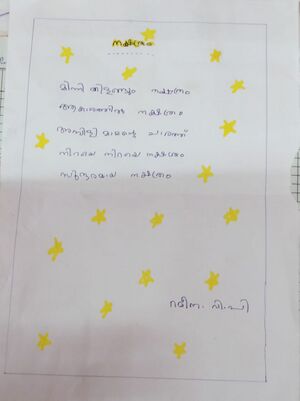 നക്ഷത്രം
മിന്നി തിളങ്ങും നക്ഷത്രം
ആകാശത്തിൽ നക്ഷത്രം
അമ്പിളി മാമന്റെ ചാരത്ത്
നിറയെ നിറയെ നക്ഷത്രം
സുന്ദരമായ നക്ഷത്രം
റബീന. വി.പി